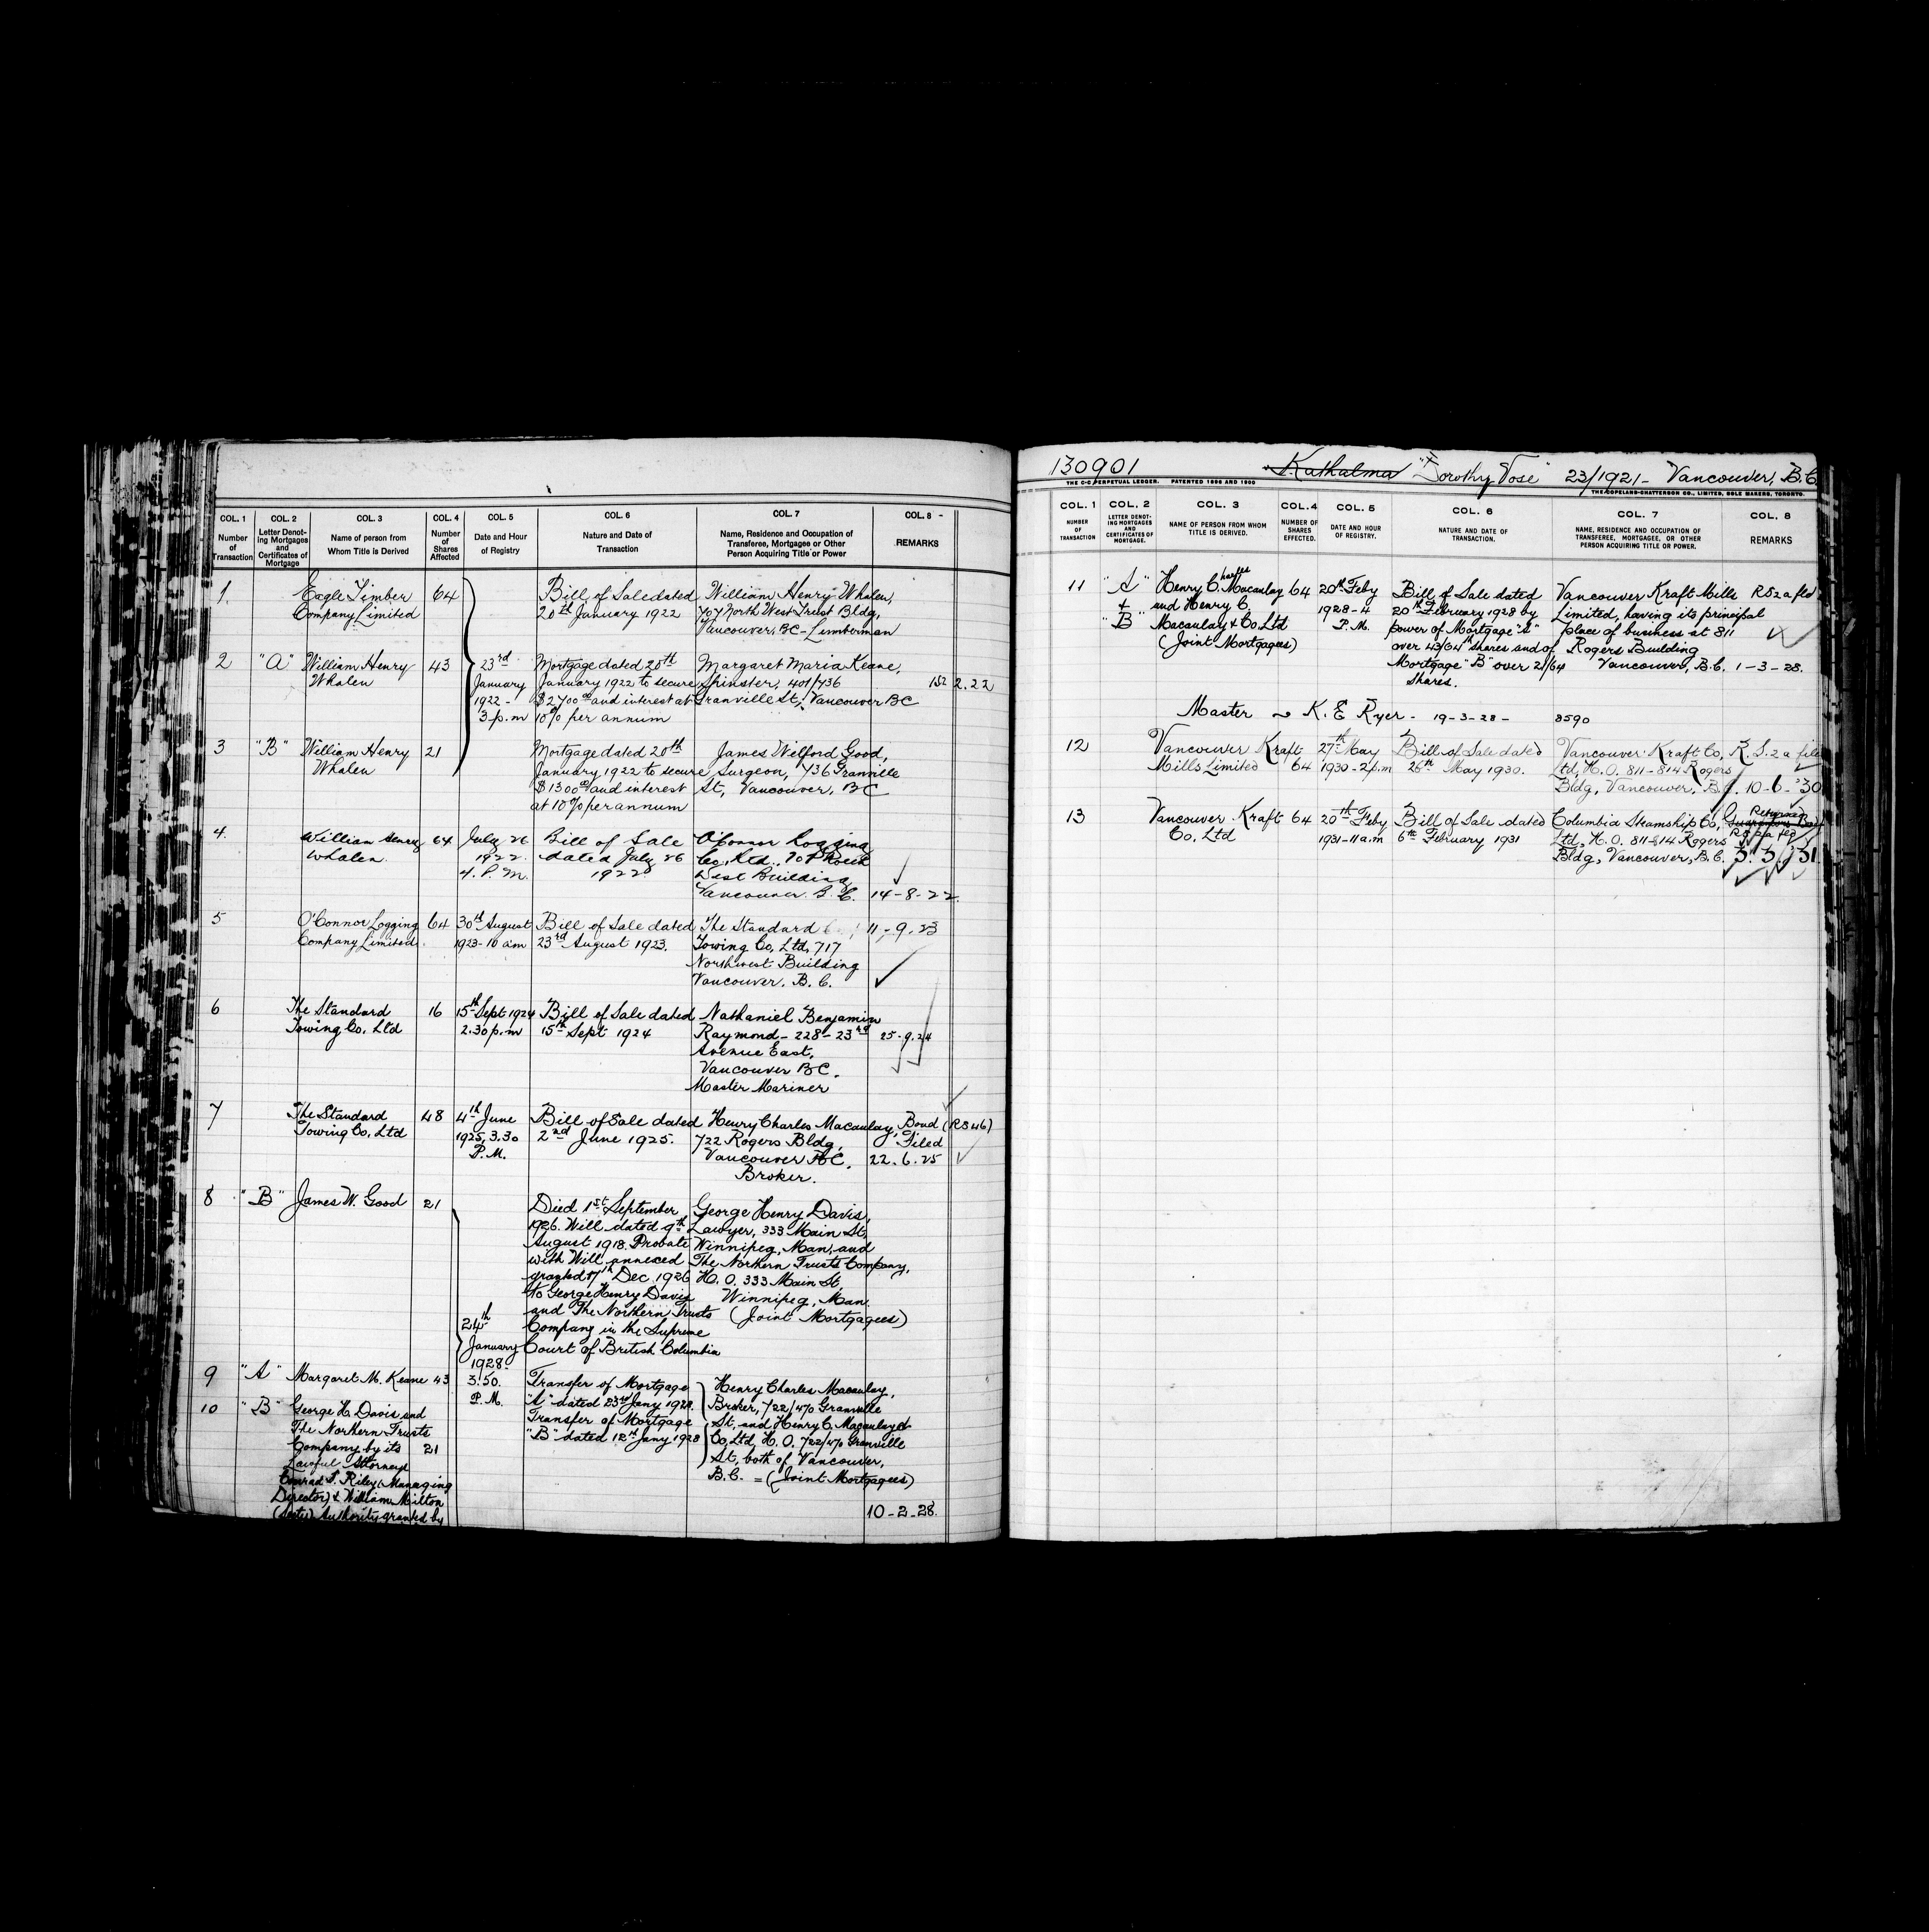 COL. 1 COL. 2 COL. 3 COL. 4 COL. 5 COL. 6 COL. 7 COL. 8
Number of Transaction
Letter Denoting Mortgages and Certificates of Mortgage
Name of person from Whom Title is Derived
Number of Shares Affected
Date and Hour of Registry
Nature and Date of Transaction
Name, Residence and Occupation of Transferee, Mortgagee or Other Person Acquiring Title or Power
REMARKS
1. Eagle Timber 64 Bill of Sale dated William Henry Whalen,
Company Limited 20th January 1922 707 North West Trust Bldg,
Vancouver, BC - Lumberman
2 "A" William Henry 43 23rd Mortgage dated 20th Margaret Maria Keane,
Whalen January January 1922 to secure Spinster, 401/736 152 2.22
1922 - $2700 00 and interest at Granville St, Vancouver BC
3 p.m 10% per annum
3 "B" William Henry 21 Mortgage dated 20th James Wilford Good,
Whalen January 1922 to secure Surgeon, 736 Granville
$1300 00 and interest St, Vancouver, BC
at 10% per annum
4. William Henry 64 July 26 Bill of Sale O'Connor Logging
Whalen 1922 dated July 26 Co. Ltd.
4. P.M. 1922 West Building
Vancouver. B.C. 14-8-22
5 O'Connor Logging 64 30th August Bill of Sale dated The Standard 11-9-23
Company Limited 1923-10 am 23rd August 1923. Towing Co, Ltd, 717
Northwest Building
Vancouver. B.C.
6 The Standard 16 15th Sept 1924 Bill of Sale dated Nathaniel Benjamin
Towing Co. Ltd 2.30 p.m 15th Sept 1924 Raymond - 228-23rd 25-9.24
Avenue East,
Vancouver BC.
Master Mariner
7 The Standard 48 4th June Bill of Sale dated Henry Charles Macaulay, Bond (RS46)
Towing Co. Ltd 1925, 3.30 2nd June 1925. 722 Rogers Bldg, Filed
P.M. Vancouver BC. 22.6.25
Broker.
8 "B" James W. Good 21 Died 1st September George Henry Davis,
1926. Will dated 9th Lawyer, 333 Main St,
August 1918. Probate Winnipeg, Man, and
with Will annexed The Northern Trusts Company,
granted 17th Dec 1926 H.O. 333 Main St,
to George Henry Davis Winnipeg, Man.
and The Northern Trusts (Joint Mortgagees)
24th Company in the Supreme
January Court of British Columbia
1928-
9 "A" Margaret M. Keane 43 3.50. Transfer of Mortgage Henry Charles Macaulay,
P.M. "A" dated 23rd Jany 1928. Broker, 722/470 Granville
10 "B" George H. Davis and Transfer of Mortgage St, and Henry C. Macaulay &
The Northern Trusts "B" dated 12th Jany 1928 Co, Ltd, H.O. 722/470 Granville
Company by its 21 St, both of Vancouver,
Lawful Attorneys B.C. = (Joint Mortgagees)
Conrad S. Riley (Managing
Director) & William Milton
(Secty) Authority granted by 10-2-28.
130901 Kathalma "Dorothy Vose" 23/1921 - Vancouver, B.C.
THE C-C PERPETUAL LEDGER. PATENTED 1896 AND 1900 THE COPELAND-CHATTERSON CO., LIMITED, SOLE MAKERS, TORONTO.
COL. 1 COL. 2 COL. 3 COL. 4 COL. 5 COL. 6 COL. 7 COL. 8
NUMBER OF TRANSACTION
LETTER DENOTING MORTGAGES AND CERTIFICATES OF MORTGAGE.
NAME OF PERSON FROM WHOM TITLE IS DERIVED.
NUMBER OF SHARES EFFECTED.
DATE AND HOUR OF REGISTRY.
NATURE AND DATE OF TRANSACTION.
NAME, RESIDENCE AND OCCUPATION OF TRANSFEREE, MORTGAGEE, OR OTHER PERSON ACQUIRING TITLE OR POWER.
REMARKS
11 "A" Henry Charles Macaulay 64 20th Feby Bill of Sale dated Vancouver Kraft Mills RS 2a fld
+ and Henry C. 1928-4 20th February 1928 by Limited, having its principal
"B" Macaulay & Co, Ltd P.M. power of Mortgage "A" place of business at 811
(Joint Mortgagees) over 43/64th shares and of Rogers Building
Mortgage "B" over 21/64 Vancouver, B.C. 1-3-28.
Shares.
Master ~ K. E Ryer - 19-3-28 - 8590
12 Vancouver Kraft 27th May Bill of Sale dated Vancouver Kraft Co, R.S. 2a file
Mills Limited 64 1930-2 p.m 26th May 1930. Ltd, H.O. 811-814 Rogers
Bldg, Vancouver, B.C. 10-6-'30
13 Vancouver Kraft 64 20th Feby Bill of Sale dated Columbia Steamship Co, Returned
Co. Ltd 1931-11 a.m 6th February 1931 Ltd, H.O. 811-814 Rogers RS 2a fld
Bldg, Vancouver, B.C. 3.3/31.